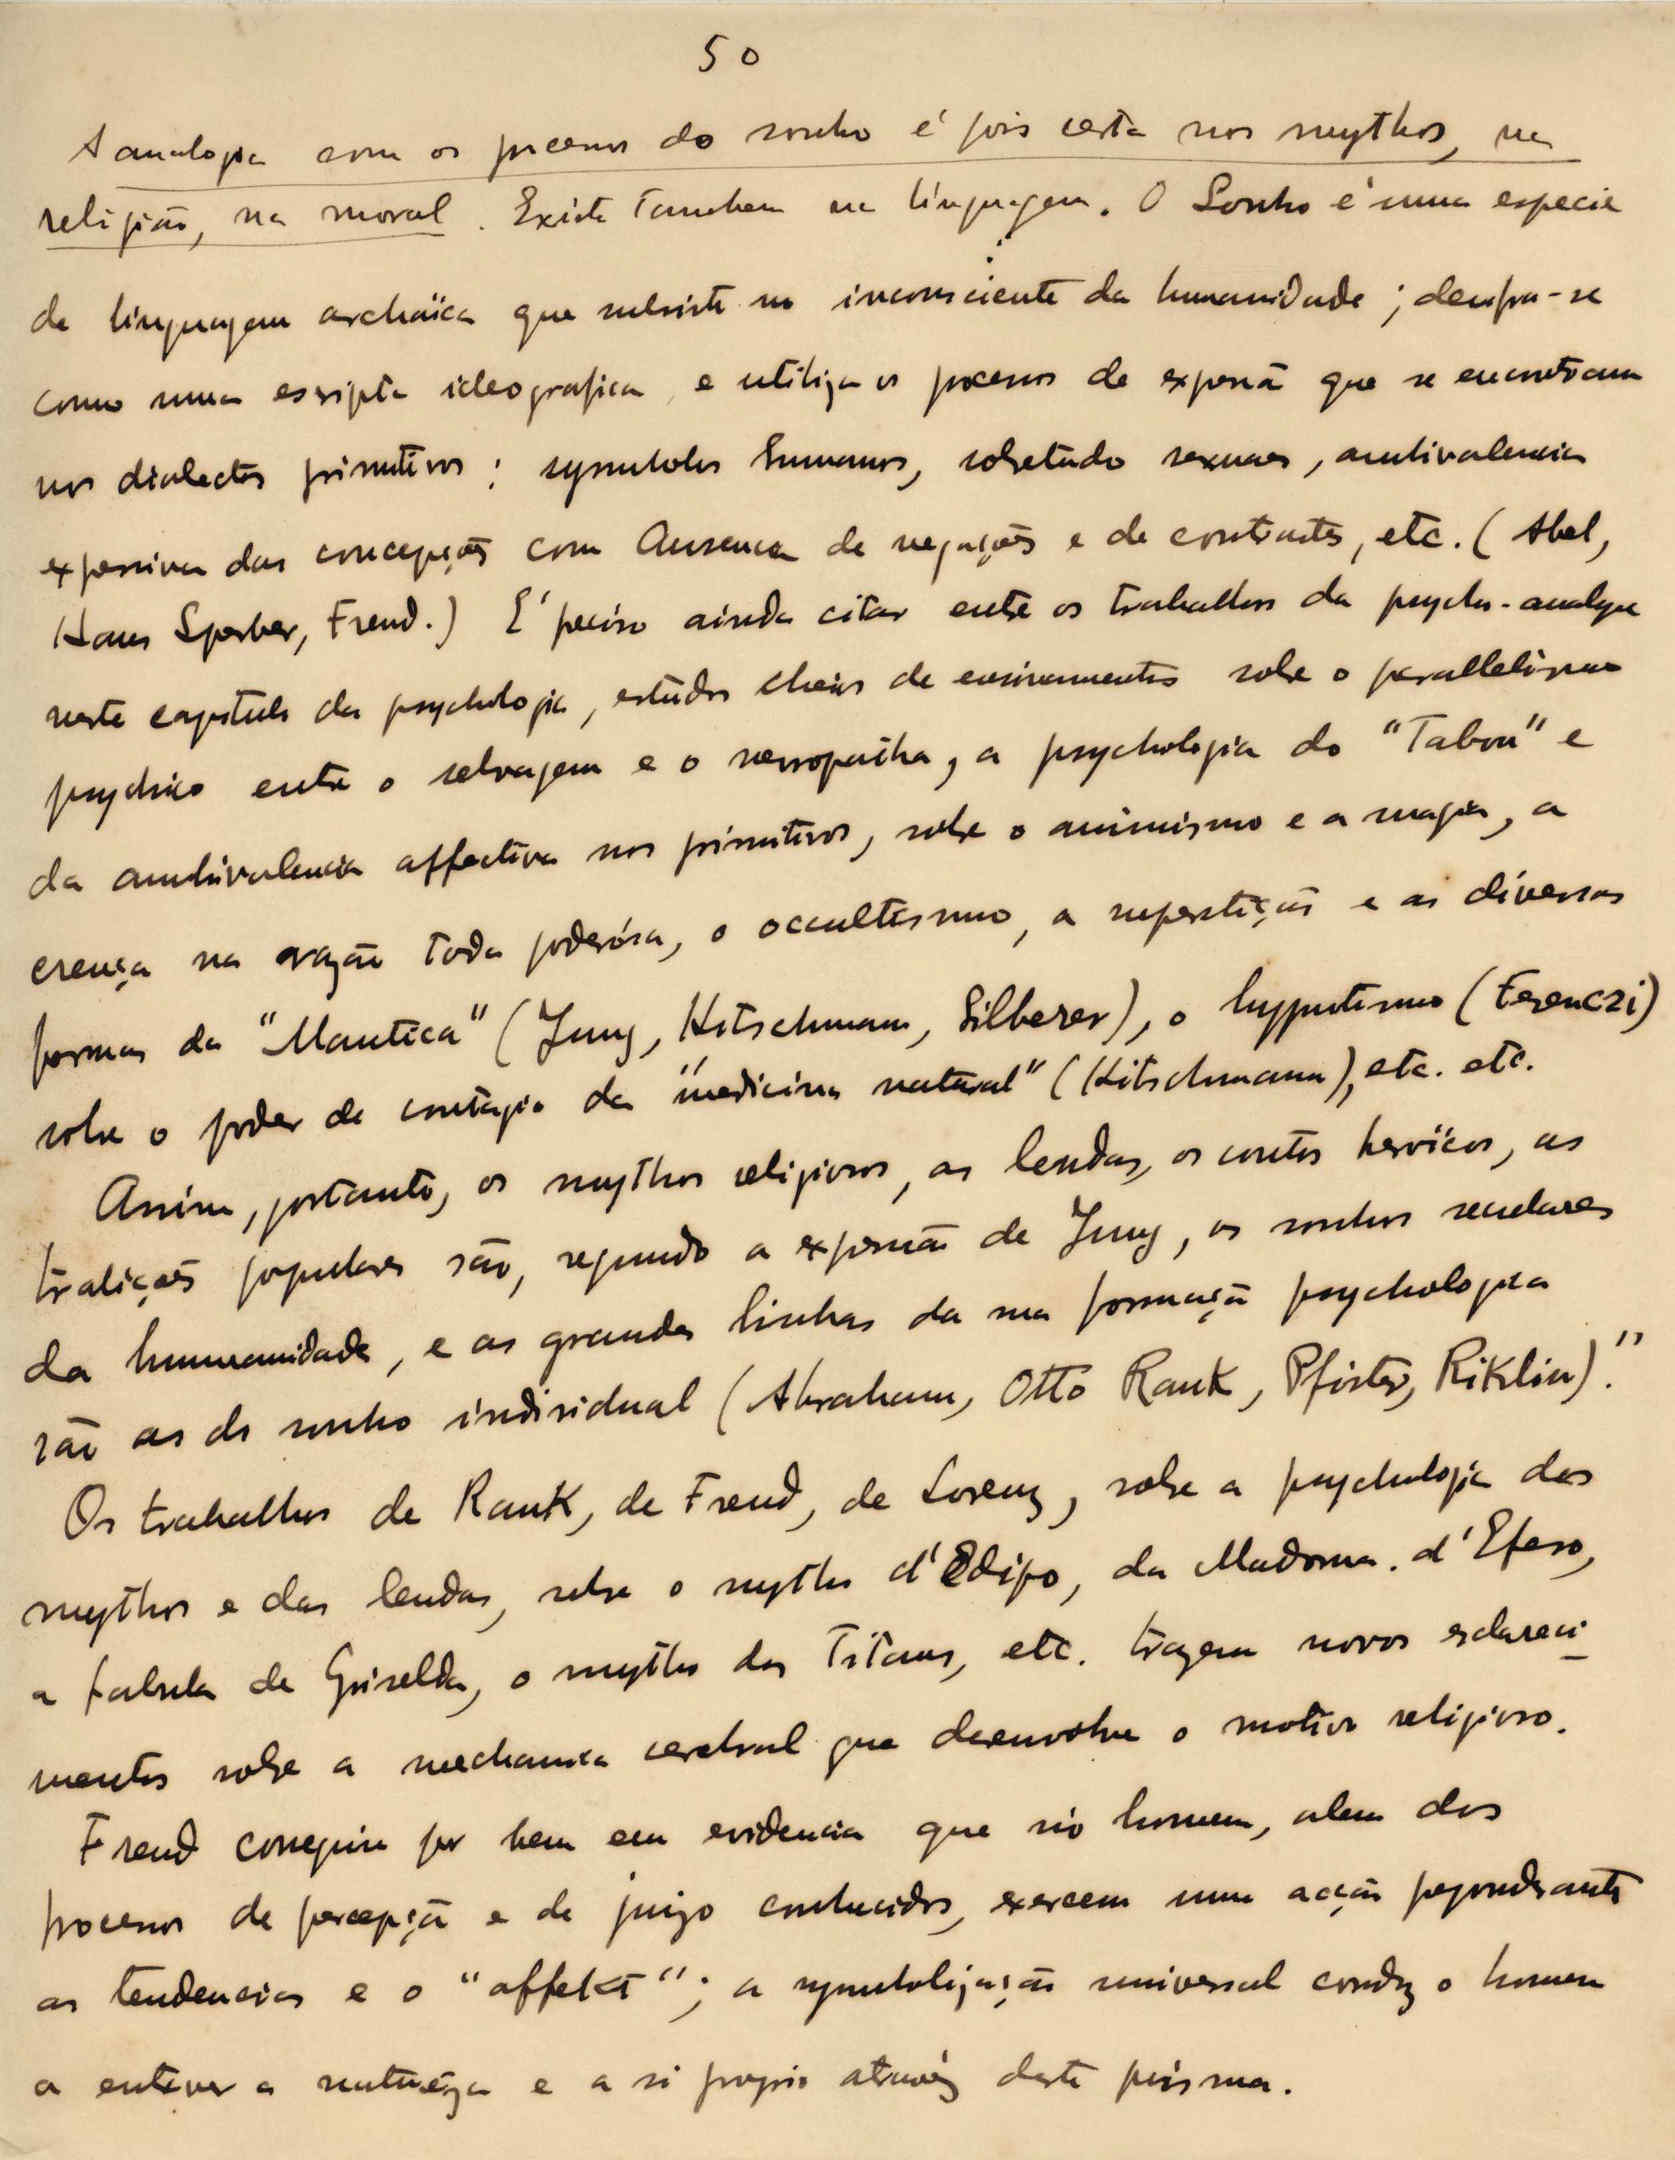 50
A analogia com os processos do sonho é pois certa nos mythos, na
religião, na moral. Existe tambem na linguagem. O Sonho é uma especie
de linguagem archaïca que subsiste no inconsciente da humanidade; decifra-se
como uma escripta ideografica, e utiliza os processos de expressão que se encontram
nos dialectos primitivos: symbolos humanos, sobretudo sexuaes, ambivalencia
expressiva das concepções com Ausencia de negações e de contrastes, etc. (Abel,
Hans Sperber, Freud.) É preciso ainda citar entre os trabalhos da psycho-analyse
neste capitulo da psychologia, estudos cheios de ensinamentos sobre o parallelismo
psychico entre o selvagem e o nevropatha, a psychologia do "Tabou" e
da ambivalencia affectiva nos primitivos, sobre o animismo e a magia, a
crença na oração toda poderósa, o occultismo, a superstição e as diversas
formas da "Mantica" (Jung, Hitschmann, Silberer), o hypnotismo (Ferenczi)
sobre o poder de contagio da "medicina natural" (Hitschmann), etc. etc.
Assim, portanto, os mythos religiosos, as lendas, os contos heroïcos, as
tradições populares são, segundo a expressão de Jung, os sonhos seculares
da humanidade, e as grandes linhas da sua formação psychologica
são as do sonho individual (Abraham, Otto Rank, Pfister, Riklin)."
Os trabalhos de Rank, de Freud, de Lorenz, sobre a psychologia dos
mythos e das lendas, sobre o mytho d'Edipo, da Madona. d'Efeso,
a fabula de Griselda, o mytho dos Titans, etc. trazem novos esclareci-
mentos sobre a mechanica cerebral que desenvolve o motivo religioso.
Freud conseguiu por bem em evidencia que nó homem, alem dos
processos de percepção e de juizo conhecidos, exercem uma acção preponderante
as tendencias e o "affekt"; a symbolização universal conduz o homem
a entrever a naturéza e a si proprio atravéz deste prisma.